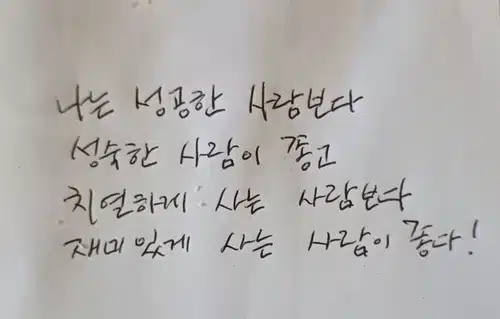 나는 성공한 사람보다
성숙한 사람이 좋고
치열하게 사는 사람보다
재미있게 사는 사람이 좋다!